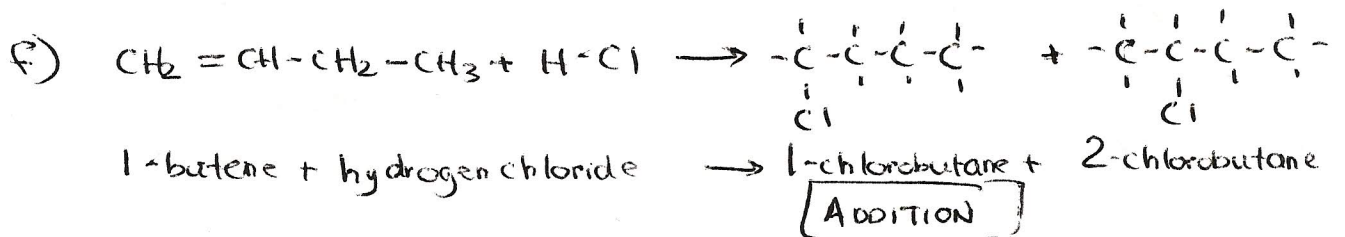 f) CH₂ = CH - CH₂ - CH₃ + H - Cl → - C - C - C - C - + - C - C - C - C -
Cl Cl
1-butene + hydrogen chloride → 1-chlorobutane + 2-chlorobutane
ADDITION